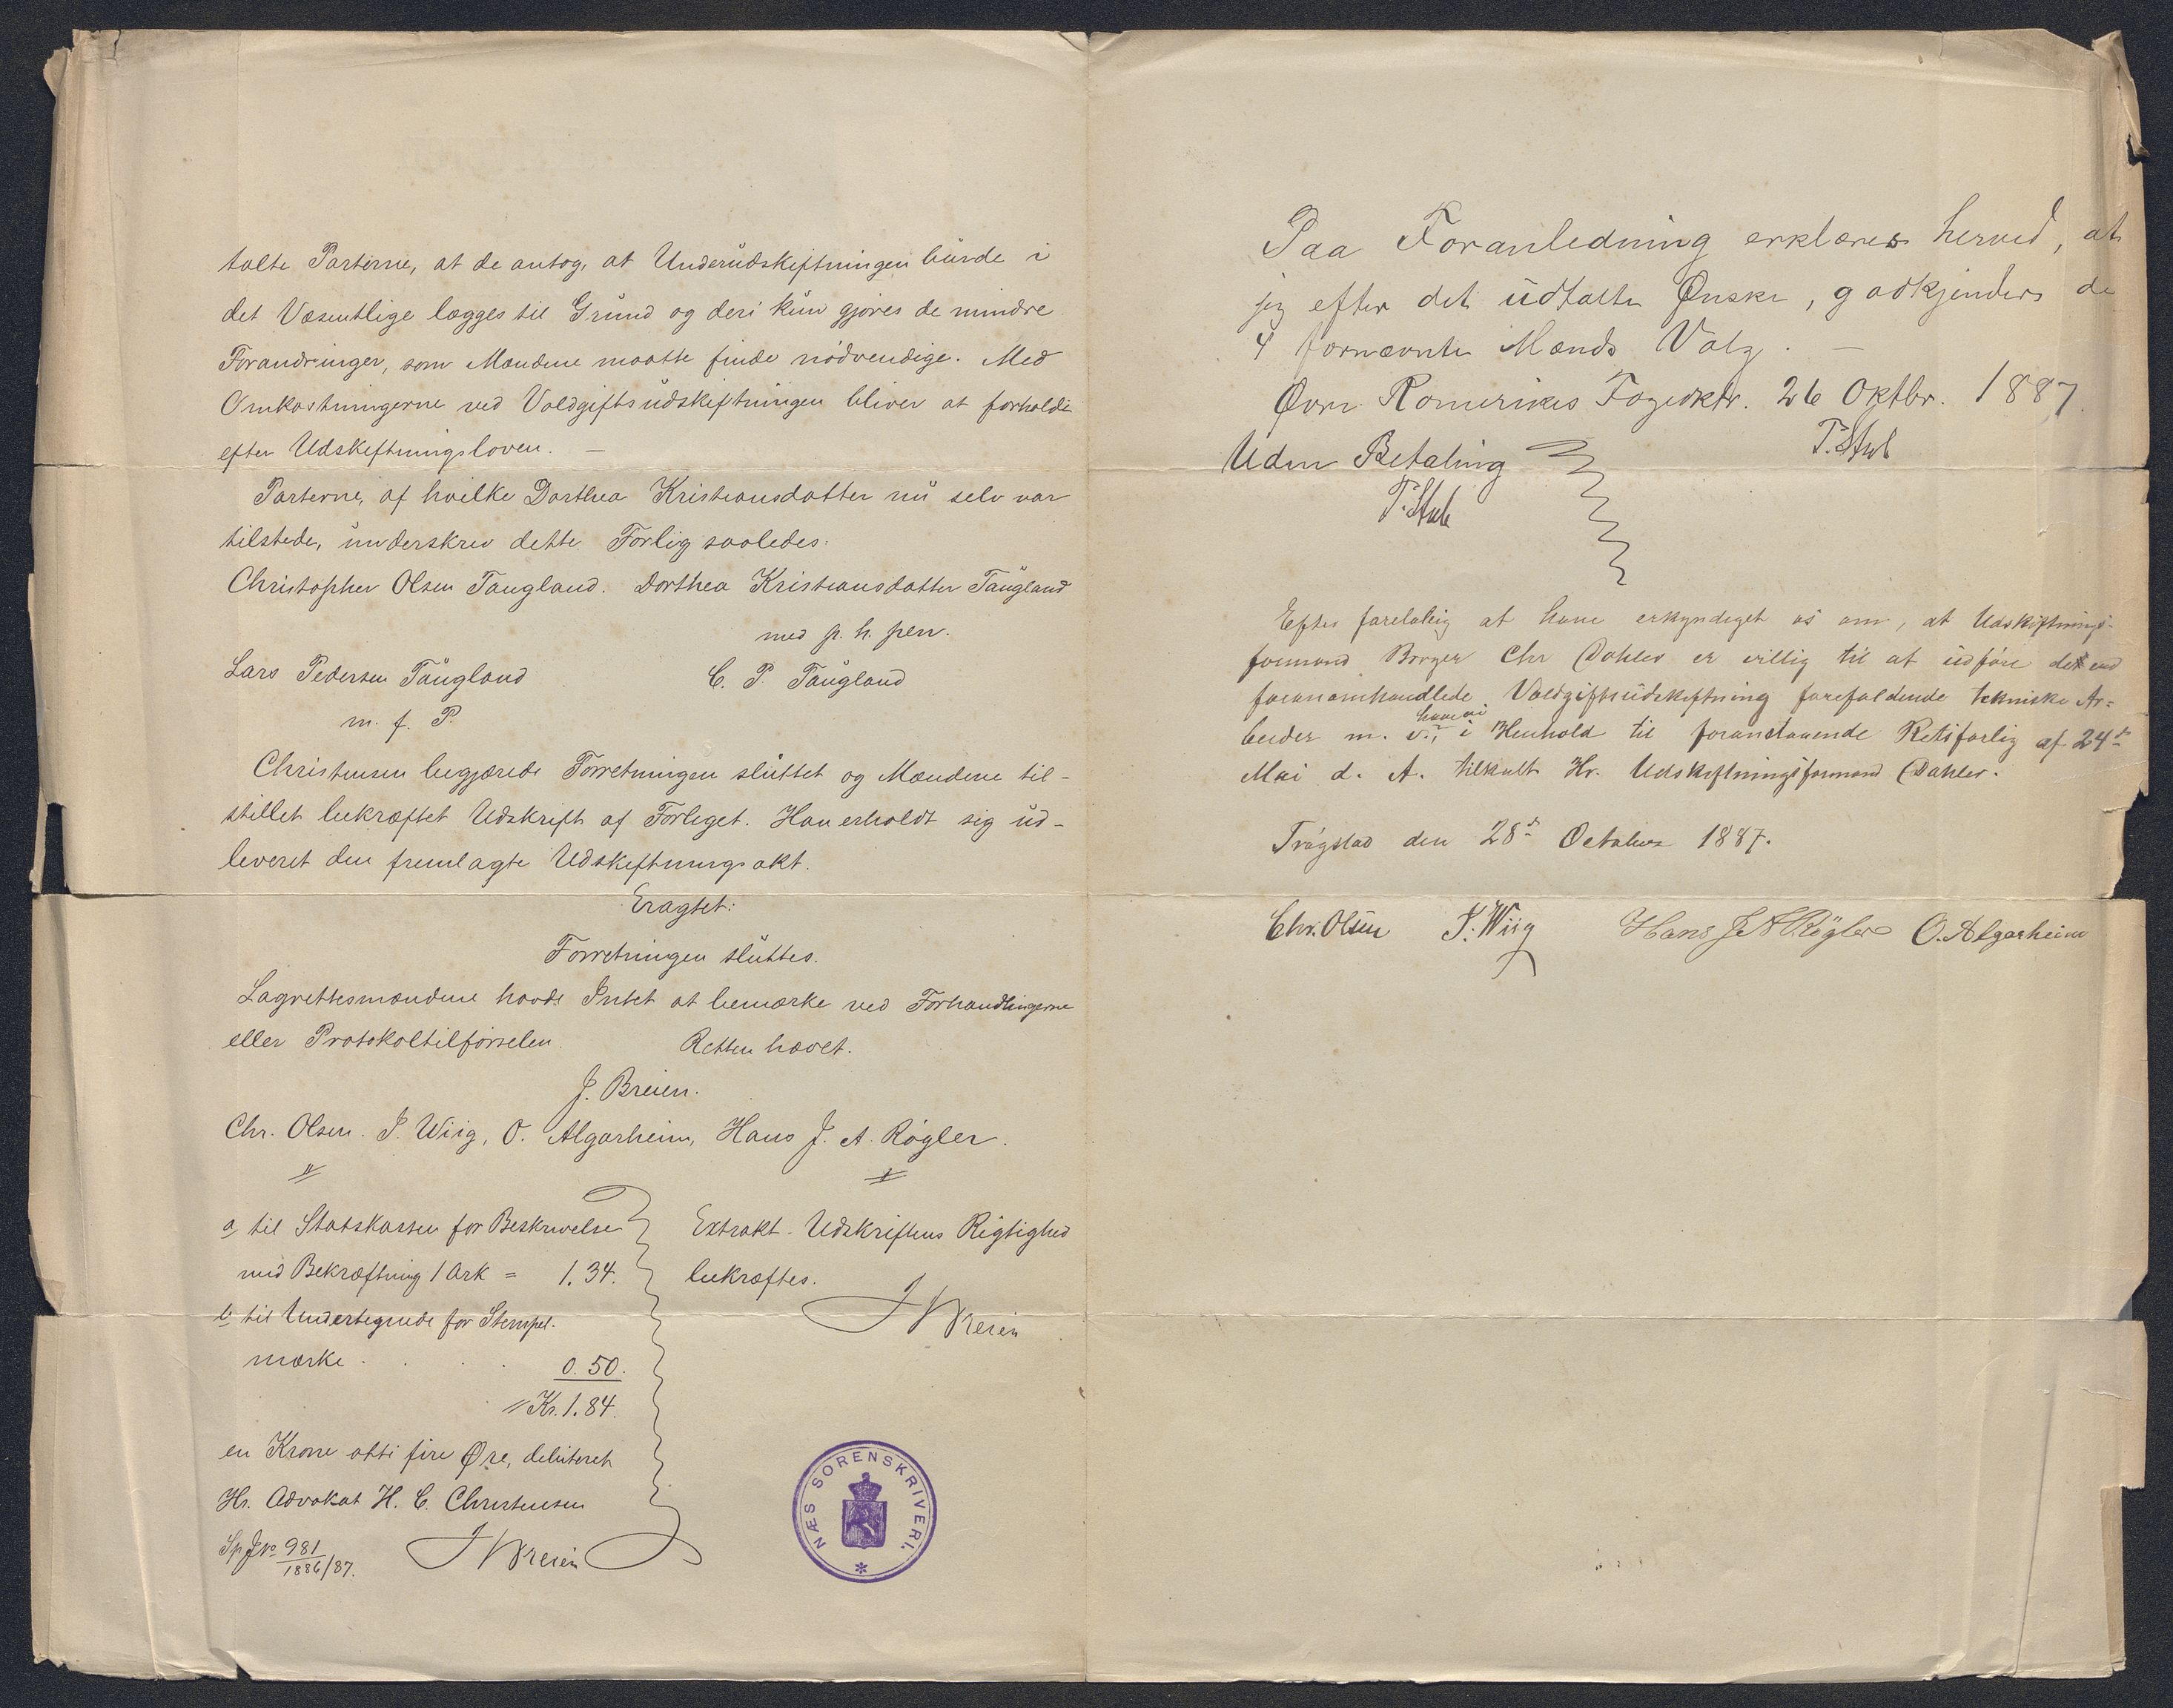 talte Parterne, at de antog, at Underudskiftningen burde i
det Væsentlige lægges til Grund og deri kun gjøres de mindre
Forandringer, som Mændene maatte finde nödvendige. Med
Omkostningerne ved Voldgiftsudskiftningen bliver at forholde
efter Udskiftningsloven. —
Parterne, af hvilke Dorthea Kristiansdatter nu selv var
tilstede, underskrev dette Forlig saaledes:
Christopher Olsen Taugland. Dorthea Kristiansdatter Taugland
med p. h. pen.
Lars Pedersen Taugland C. P. Taugland
m. f. P.
Christensen begjærede Forretningen sluttet og Mændene til-
stillet bekræftet Udskrift af Forliget. Han erholdt sig ud-
leveret den fremlagte Udskiftningsakt.
Eragtet:
Forretningen sluttes.
Lagrettesmændene havde Intet at bemærke ved Forhandlingerne
eller Protokoltilförselen. Retten hævet.
J. Breien.
Chr. Olsen. I. Wiig, O. Algarheim, Hans J. A. Rögler.
a, til Statskassen for Beskrivelse
med Bekræftning 1 Ark = 1.34.
b, til Undertegnede for Stempel-
mærke . . . 0.50.
= Kr. 1.84.
en Krone otti fire Øre, debiteret
Hr. Advokat H. C. Christensen
Sp J No 981
1886/87.
J Breien
Extrakt-Udskriftens Rigtighed
bekræftes.
J Breien
NÆS SORENSKRIVERI.
Paa Foranledning erklæres herved, at
jeg efter det udtalte Ønske, godkjender de
4 fornævnte Mænds Valg. —
Øvre Romerikes Fogedktr. 26 Oktbr. 1887.
T. Stub
Uden Betaling
T. Stub
Efter foreløbig at have erkyndiget os om, at Udskiftnings-
formand Borger Chr Dahler er villig til at udföre de end
foranomhandlede Voldgiftsudskiftning forefaldende tekniske Ar=
beider m. v., have vi i Henhold til foranstaaende Retsforlig af 24de
Mai d. A. tilkaldt Hr. Udskiftningsformand Dahler.
Trögstad den 28de October 1887.
Chr. Olsen I. Wiig Hans J A Rögler O. Algarheim